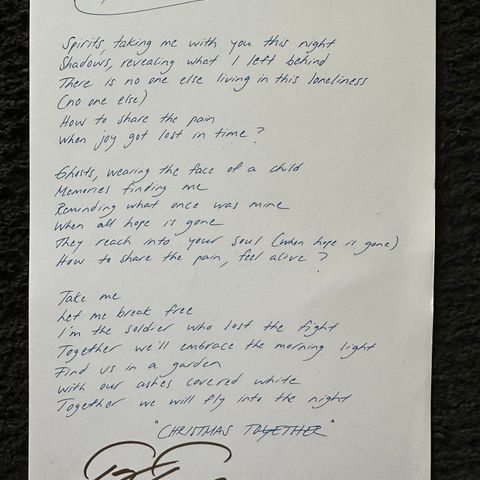 Spirits, taking me with you this night
Shadows, revealing what I left behind
There is no one else living in this loneliness
(no one else)
How to share the pain
When joy got lost in time?
Ghosts, wearing the face of a child
Memories finding me
Reminding what once was mine
When all hope is gone
They reach into your soul (when hope is gone)
How to share the pain, feel alive?
Take me
Let me break free
I'm the soldier who lost the fight
Together we'll embrace the morning light
Find us in a garden
With our ashes covered white
Together we will fly into the night
"CHRISTMAS TOGETHER"